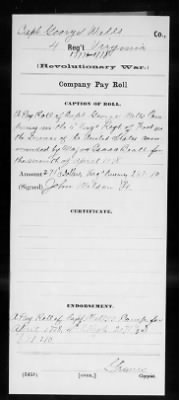 Capt. George Walls Co.,
4 Reg't Virginia
1778
(Revolutionary War.)
Company Pay Roll
CAPTION OF ROLL.
A Pay Roll of Capt. George Walls Com
pany in the 4 Virg'a Regt of Foot in
the Service of the United States com
manded by Major Isaac Beall for
the month of April 1778
Amount
(Signed) John Wilson
CERTIFICATE.
ENDORSEMENT.
A Pay Roll of Capt Walls's Comp for
April 1778
Copyist.